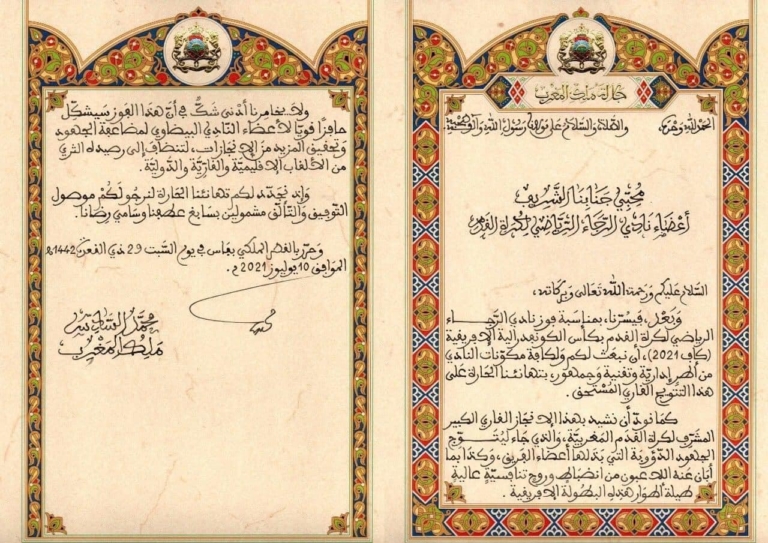 جلالة ملك المغرب
الحمد لله وحده، والصلاة والسلام على مولانا رسول الله وآله وصحبه.
محبي جنابنا الشريف
أعضاء نادي الرجاء الرياضي لكرة القدم
السلام عليكم ورحمة الله تعالى وبركاته،
وبعد، فيسرنا، بمناسبة فوز نادي الرجاء
الرياضي لكرة القدم بكأس الكونفدرالية الإفريقية
(كاف 2021)، أن نبعث لكم ولكافة مكونات النادي
من أطر إدارية وتقنية وجمهور، بتهانئنا الحارة على
هذا التتويج القاري المستحق.
كما نود أن نشيد بهذا الإنجاز القاري الكبير
المشرف لكرة القدم المغربية، والذي جاء ليتوج
الجهود الدؤوبة التي بذلها أعضاء الفريق، وكذا بما
أبان عنه اللاعبون من انضباط وروح تنافسية عالية
طيلة أطوار هذه البطولة الإفريقية.
ولا يخامرنا أدنى شك في أن هذا الفوز سيشكل
حافزا قويا لأعضاء النادي البيضاوي لمضاعفة الجهود
وتحقيق المزيد من الإنجازات، لتنضاف إلى رصيده الثري
من الألقاب الإقليمية والقارية والدولية.
وإذ نجدد لكم تهانئنا الحارة لنرجو لكم موصول
التوفيق والتألق مشمولين بسابغ عطفنا وسامي رضانا.
وحرر بالقصر الملكي بفاس في يوم السبت 29 ذي القعدة 1442هـ
الموافق 10 يوليوز 2021م.
محمد السادس
ملك المغرب